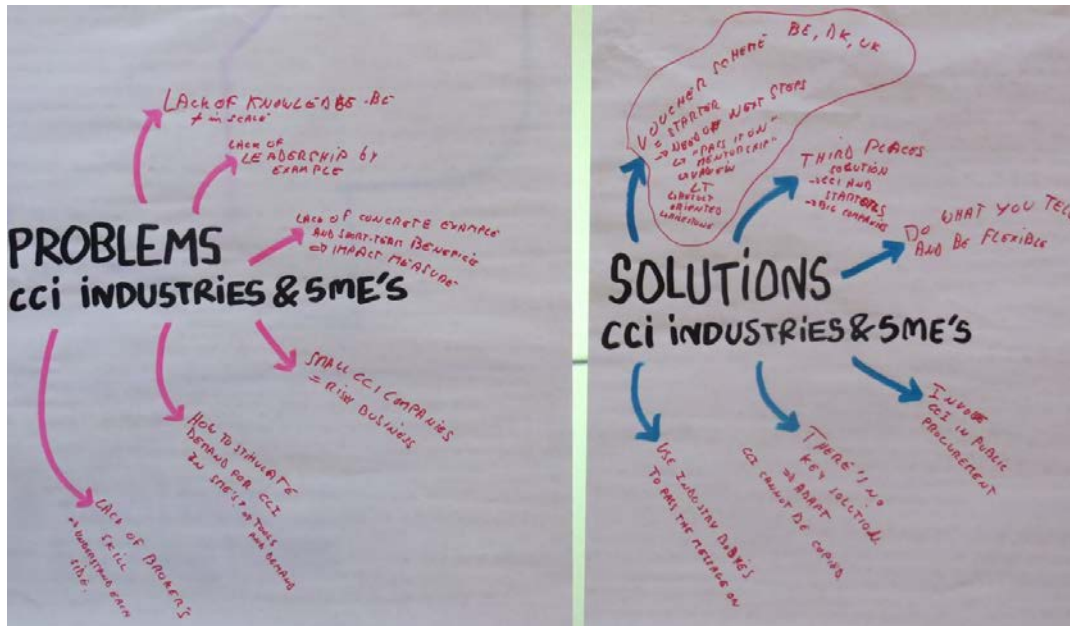 PROBLEMS
CCi iNDUSTRiES & SME'S
LACK OF KNOWLEDGE - BE
≠ in SCALE
LACK OF
LEADERSHIP BY
EXAMPLE
LACK OF CONCRETE EXAMPLE
AND SHORT-TERM BENEFICIE
⇒ IMPACT MEASURE
SMALL CCI COMPANIES
= RISKY BUSINESS
HOW TO STIMULATE
DEMAND FOR CCI
IN SME'S? TOOLS
AND DEMAND
LACK OF BROKER'S
SKILL
→ UNDERSTAND EACH
SIDE.
SOLUTiONS
CCi iNDUSTRiES & SME'S
VOUCHER SCHEME BE, DK, UK
= STARTER
→ NEED OF NEXT STEPS
↳ "PASS IT ON"
MENTORSHIP"
LT
ORIENTED
THIRD PLACES
SOLUTION
→ CCI AND
STARTERS
→ BIG COMPANIES
DO WHAT YOU TELL
AND BE FLEXIBLE
INVOLVE
CCI IN PUBLIC
PROCUREMENT
THERE'S NO
KEY SOLUTION.
⇒ ADAPT
CCI CANNOT BE COPIED
USE INDUSTRY BODIES
TO PASS THE MESSAGE ON